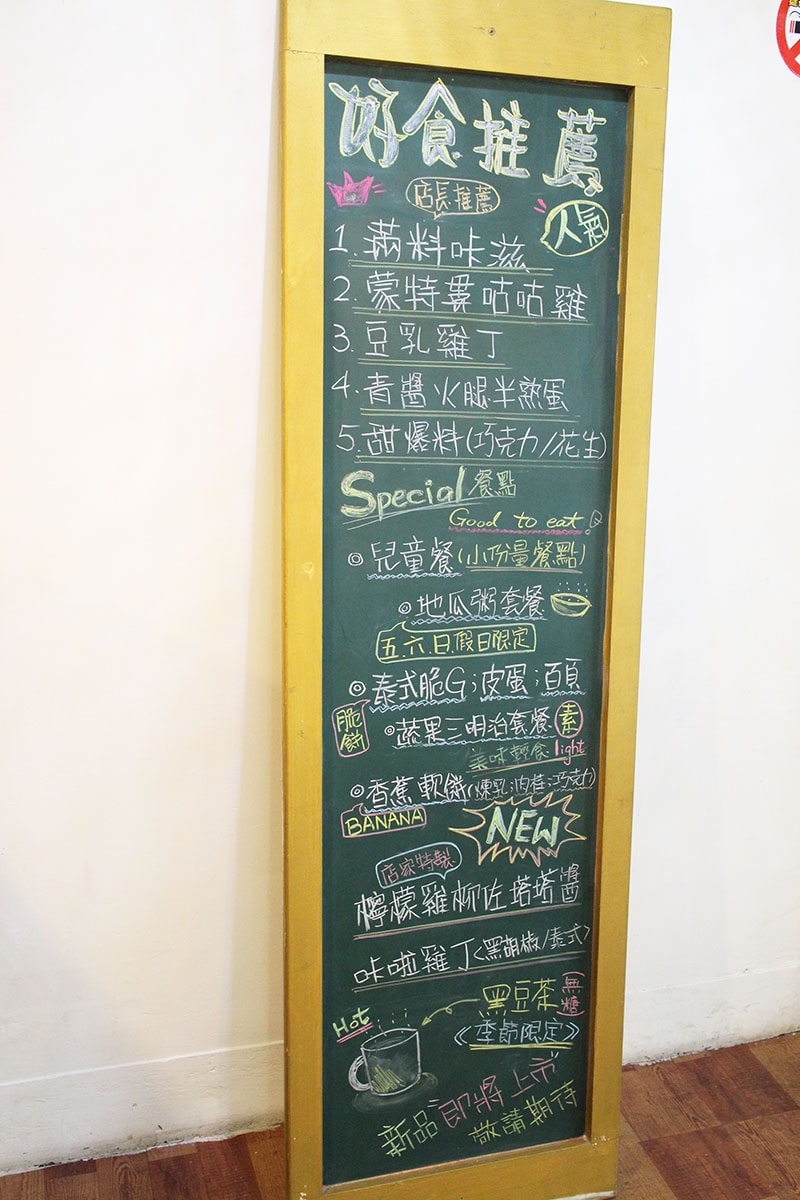 好食推薦
店長推薦
人氣
1. 滿料咔滋
2. 蒙特婁咕咕雞
3. 豆乳雞丁
4. 青醬火腿半熟蛋
5. 甜爆料(巧克力/花生)
Special 餐點
Good to eat
◎兒童餐(小份量餐點)
◎地瓜粥套餐
五.六.日.假日限定
◎泰式脆G;皮蛋;百頁
脆餅
◎蔬果三明治套餐 素
美味輕食 light
◎香蕉軟餅(煉乳;肉桂;巧克力)
BANANA
NEW
店家特製
檸檬雞柳佐塔塔醬
咔啦雞丁<黑胡椒/泰式>
Hot
黑豆茶 無糖
《季節限定》
新品即將上市
敬請期待